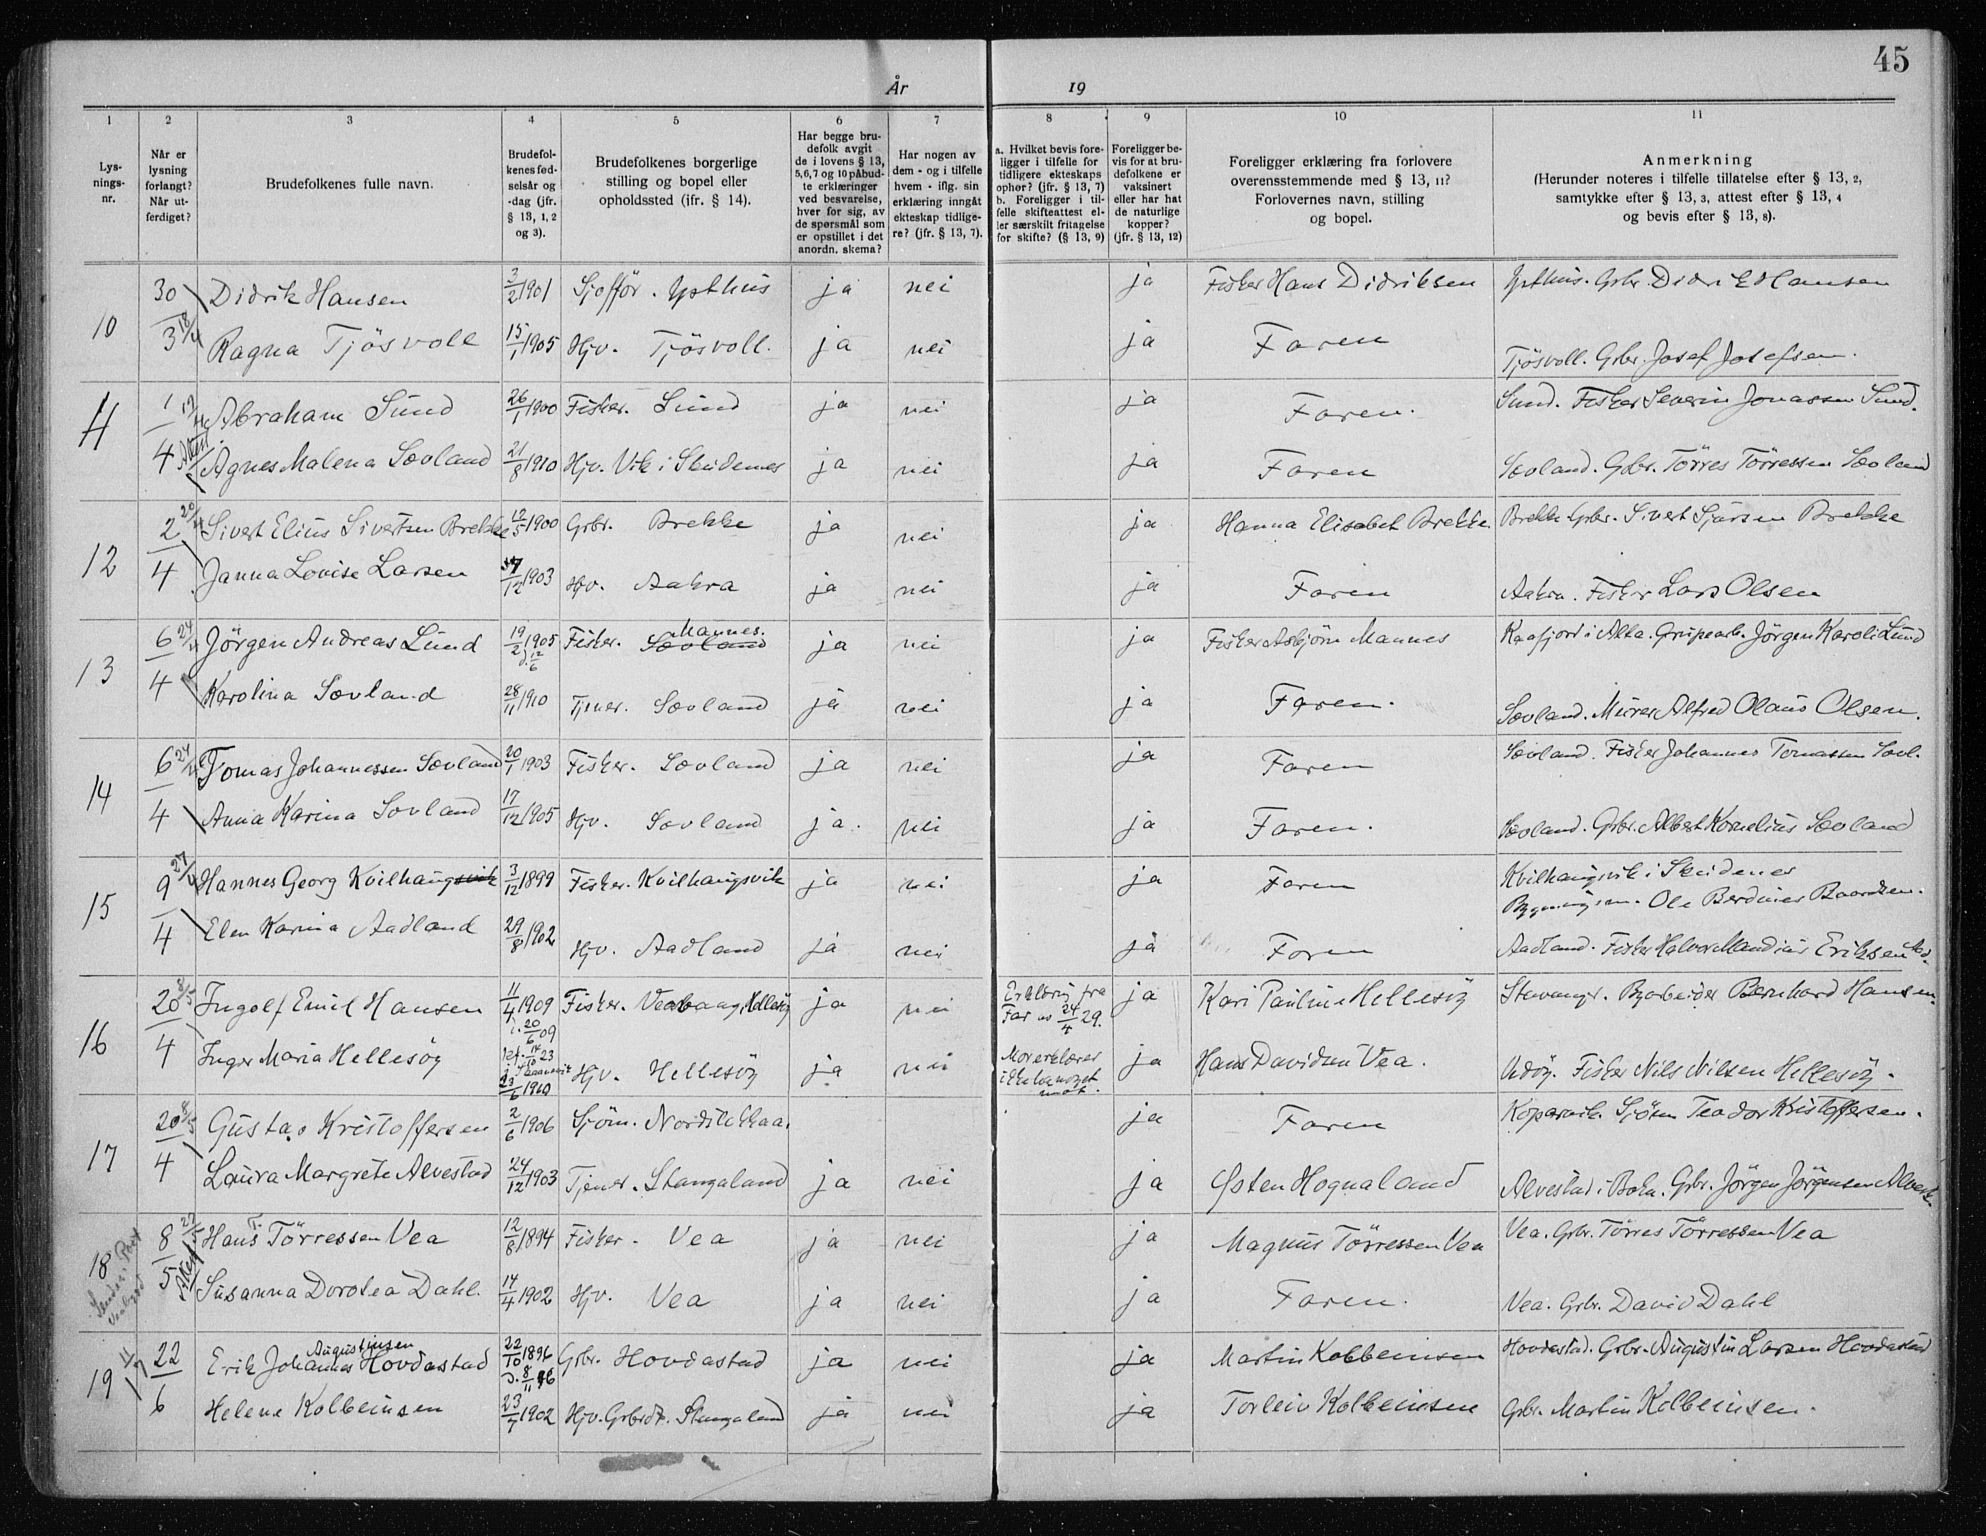 45
År 19
1 2 3 4 5 6 7 8 9 10 11
Lys-
nings-
nr.
Når er
lysning
forlangt?
Når ut-
ferdiget?
Brudefolkenes fulle navn.
Brudefol-
kenes fød-
selsår og
-dag (jfr.
§ 13, 1, 2
og 3).
Brudefolkenes borgerlige
stilling og bopel eller
opholdssted (ifr. § 14).
Har begge bru-
defolk avgit
de i lovens § 13,
5,6,7 og 10 påbud-
te erklæringer
ved besvarelse,
hver for sig, av
de spørsmål som
er opstillet i det
anordn. skema?
Har nogen av
dem - og i tilfelle
hvem - iflg. sin
erklæring inngåt
ekteskap tidlige-
re? (jfr. § 13, 7).
a. Hvilket bevis fore-
ligger i tilfelle for
tidligere ekteskaps
ophør? (jfr. § 13, 7)
b. Foreligger i til-
felle skifteattest el-
ler særskilt fritagelse
for skifte? (§ 13, 9)
Foreligger be-
vis for at bru-
defolkene er
vaksinert
eller har hat
de naturlige
kopper?
(jfr. § 13, 12)
Foreligger erklæring fra forlovere
overensstemmende med § 13, 11?
Forlovernes navn, stilling
og bopel.
Anmerkning
(Herunder noteres i tilfelle tillatelse efter § 13, 2,
samtykke efter § 13, 3, attest efter § 13, 4
og bevis efter § 13, 8).
10 30/3 18/4 Didrik Hansen 3/2 1901 Sjofför. Ypthus ja nei ja Fisker Hans Didriksen Ypthus. Grbr. Didrik Hansen
Ragna Tjösvoll 15/1 1905 Hjv. Tjösvoll. ja nei ja Faren Tjösvoll. Grbr. Josef Josefsen.
11 1/4 19/4 Abraham Sund 26/1 1900 Fisker. Sund ja nei ja Faren. Sund. Fisker Severin Jonassen Sund.
Agnes Malena Sævland 21/8 1910 Hjv. Vik i Skudenes ja nei ja Faren Sævland. Grbr. Törres Törressen Sævland
12 2/4 20/4 Sivert Elius Sivertsen Brekke 12/5 1900 Grbr. Brekke ja nei ja Hanna Elisabet Brekke. Brekke Grbr. Sivert Sjursen Brekke
Janna Lovise Larsen 7/12 1903 Hjv. Aakra ja nei ja Faren Aakra. Fisker Lars Olsen
13 6/4 24/4 Jörgen Andreas Lund 19/2 1905 Fisker. Sævland Mannes. ja nei ja Fisker Asbjörn Mannes Kaafjord i Alta. Grupearb. Jörgen Karoli Lund
d. 12/6
Karolina Sævland 28/11 1910 Tjener. Sævland ja nei ja Faren. Sævland. Murer Alfred Olaus Olsen.
14 6/4 24/4 Tomas Johannessen Sævland 20/1 1903 Fisker. Sævland ja nei ja Faren Sævland. Fisker Johannes Tomassen Sævl.
Anna Karina Sovland 17/12 1905 Hjv. Sovland ja. nei ja Faren. Sævland. Grbr. Albert Kornelius Sævland
15 9/4 27/4 Hannes Georg Kvilhaugsvik 3/12 1899 Fisker. Kvilhaugsvik ja nei ja Faren Kvilhaugsvik i Skudenes
Bygningsm. Ole Berdinius Baardsen.
Elen Karina Aadland 29/8 1902 Hjv. Aadland ja nei ja Faren Aadland. Fisker Halvor Mandius Eriksen Aad.
16 20/4 8/5 Ingolf Emil Hansen 11/4 1909 Fisker. Veabaag, Hellesöy ja nei Erklæring fra Far av 24/4 29. ja Kari Pauline Hellesöy Stavanger. Byarbeider Bernhard Hansen.
20/6 09
14/10 23
Inger Maria Hellesöy 23/6 1910 Hjv. Hellesöy ja nei Mor erklærer ikke ha noget imot. ja Hans Davidsen Vea. Udöy. Fisker Nils Nilsen Hellesöy.
17 20/4 8/5 Gustav Kristoffersen 2/6 1906 Sjöm. ja Faren Kopervik. Sjöm Teodor Kristoffersen.
Laura Margrete Alvestad 24/12 1903 Tjener. Stangaland ja nei ja Östen Hognaland Alvestad i Bokn. Grbr. Jörgen Jörgensen Alvest.
18 8/5 22/5 Hans T. Törressen Vea 12/8 1894 Fisker. Vea ja nei ja Magnus Törressen Vea Vea. Grbr. Törres Törressen Vea
Susanna Dorotea Dahl. 14/4 1902 Hjv. Vea ja nei ja Faren. Vea. Grbr. David Dahl
19 22/6 11/7 Erik Johannes Augustinsen Hovdastad 22/10 1896 Grbr. Hovdastad ja nei ja Martin Kolbeinsen Hovdastad. Grbr. Augustin Larsen Hovdastad
d. 8/11 96
Helene Kolbeinsen 23/7 1902 Hjv. Grbrdt. Stangaland ja nei ja Torleiv Kolbeinsen Grbr. Martin Kolbeinsen.